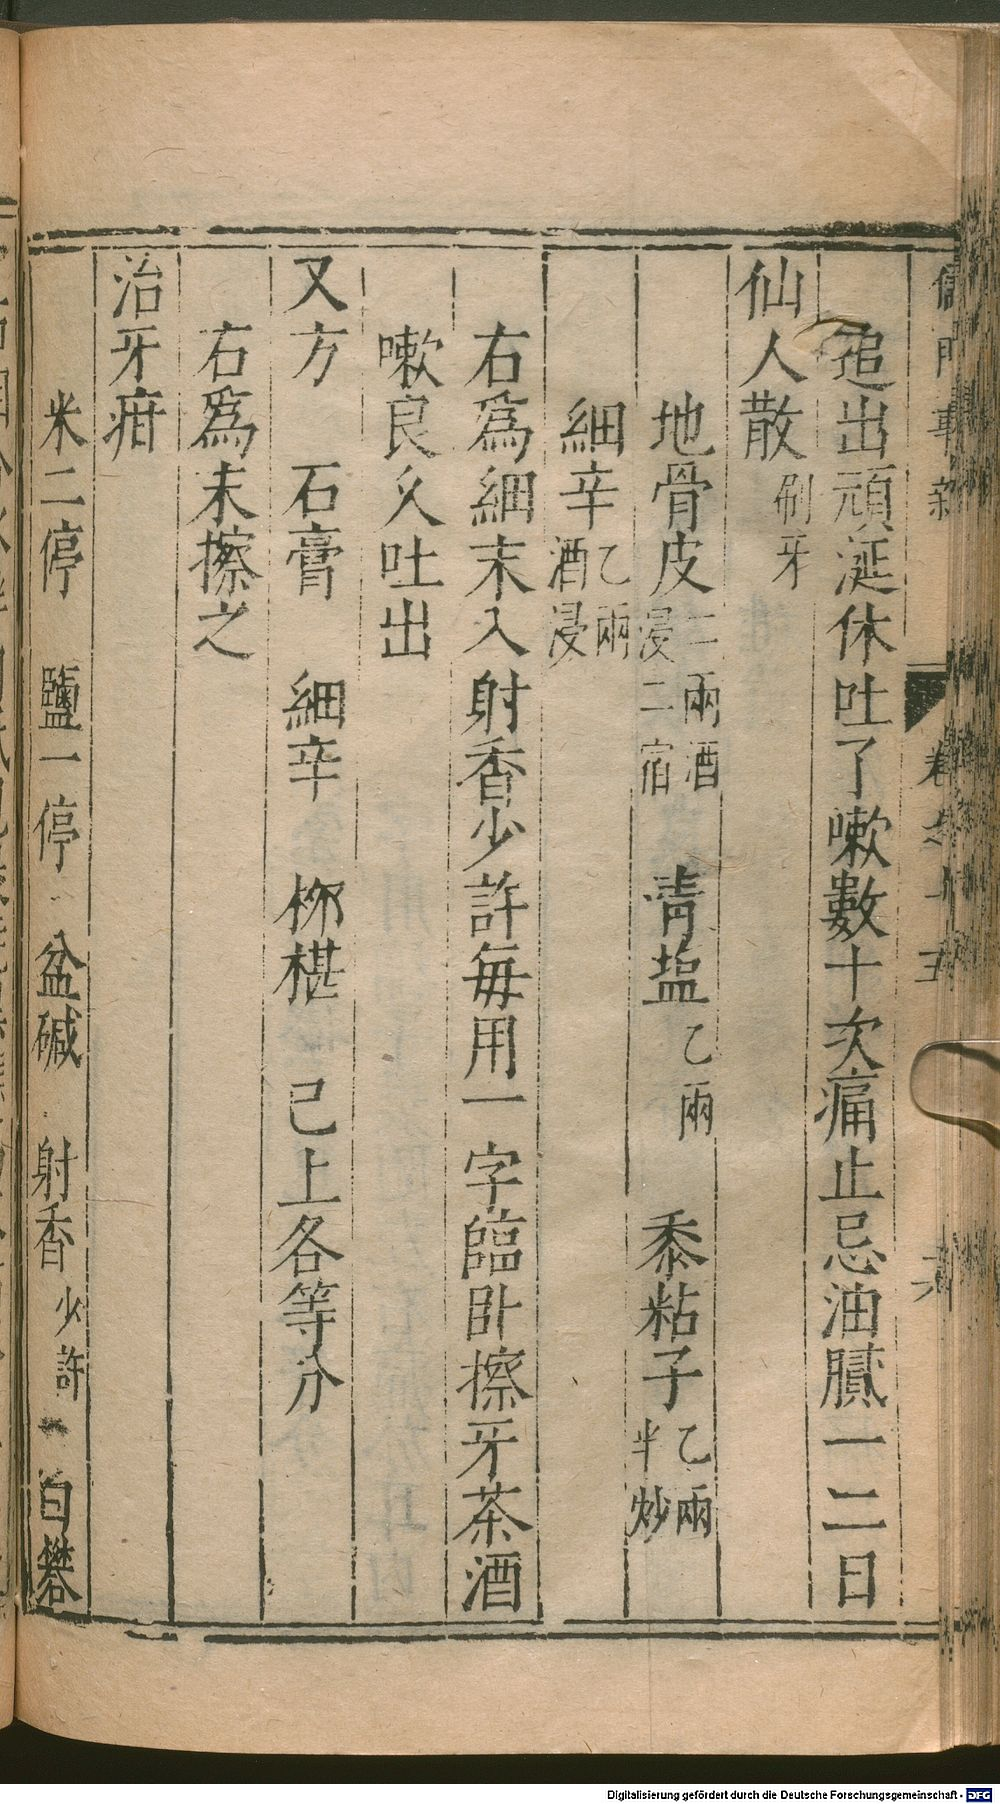 儒門事親 卷之十五 六
追出頑涎休吐了嗽數十次痛止忌油膩一二日
仙人散 刷牙
地骨皮 二兩酒浸二宿 青塩 乙兩 黍粘子 乙兩半炒
細辛 乙兩酒浸
右爲細末入射香少許每用一字臨卧擦牙茶酒
嗽良久吐出
又方 石膏 細辛 柳椹 己上各等分
右爲末擦之
治牙疳
米二停 鹽一停 盆碱 射香 少許 白礬
Digitalisierung gefördert durch die Deutsche Forschungsgemeinschaft - DFG